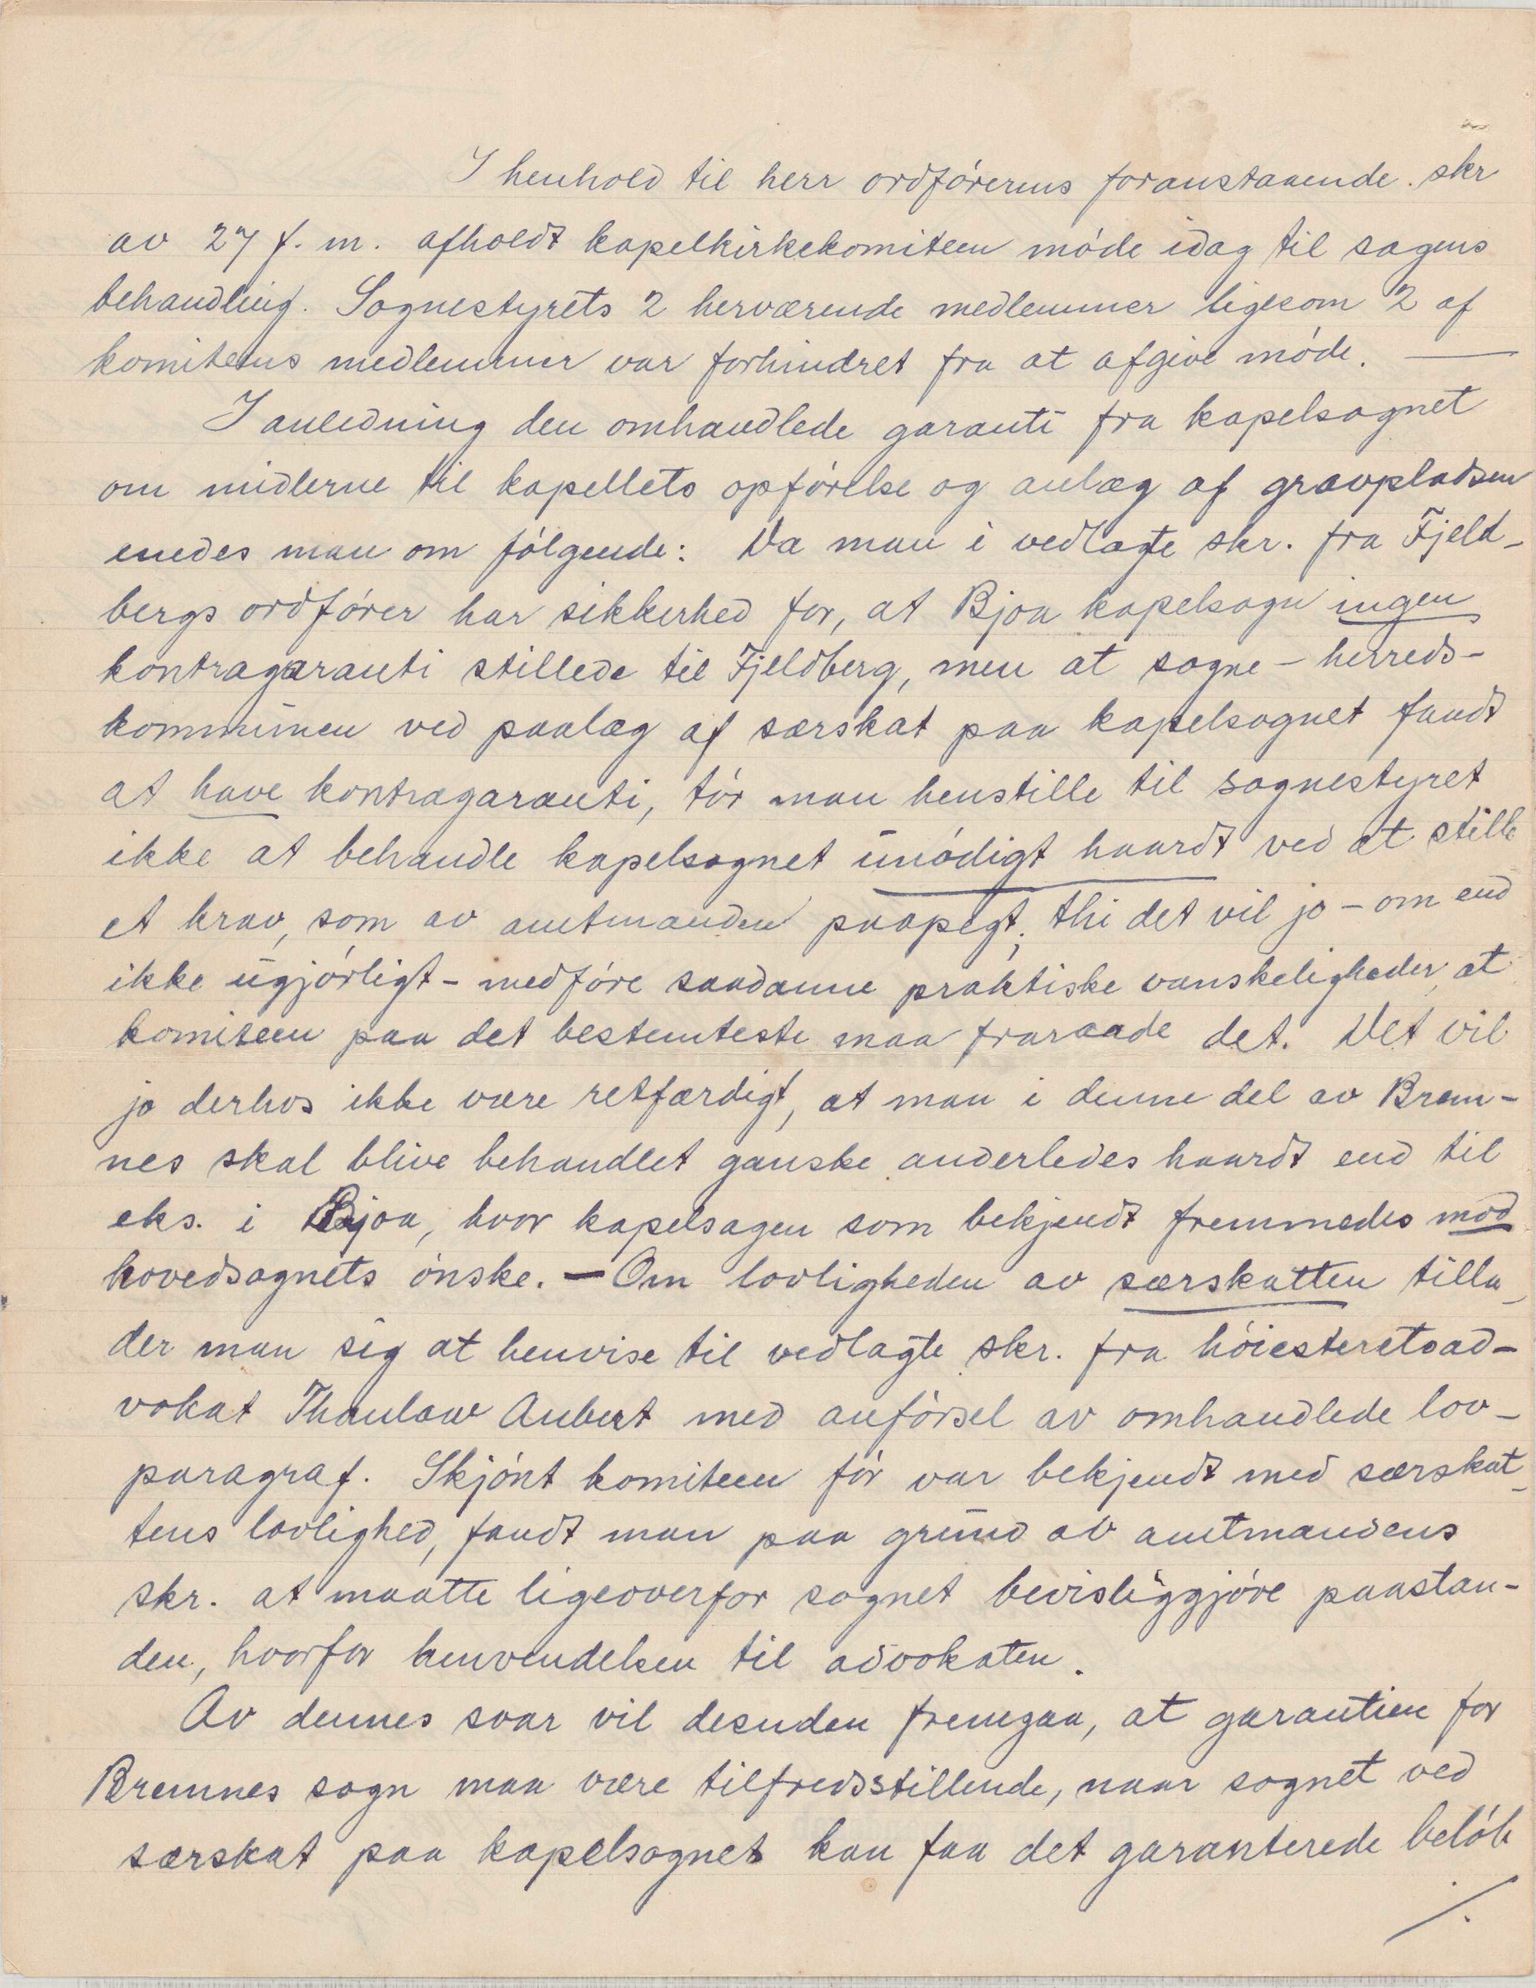 I henhold til herr ordførerens foranstaaende skr
av 27 f. m. afholdt kapelkirkekomiteen møde idag til sagens
behandling. Sognestyrets 2 herværende medlemmer ligesom 2 af
komiteens medlemmer var forhindret fra at afgive møde. —
I anledning den omhandlede garanti fra kapelsognet
om midlerne til kapellets opførelse og anlæg af gravpladsen
enedes man om følgende: Da man i vedlagte skr. fra Fjeld-
bergs ordfører har sikkerhed for, at Bjoa kapelsogn ingen
kontragaranti stillede til Fjeldberg, men at sogne-herreds-
kommunen ved paalæg af særskat paa kapelsognet fandt
at have kontragaranti, tør man henstille til sognestyret
ikke at behandle kapelsognet unødigt haardt ved at stille
et krav, som av amtmanden paapegt; thi det vil jo - om end
ikke ugjørligt - medføre saadanne praktiske vanskeligheder, at
komiteen paa det bestemteste maa fraraade det. Det vil
jo derhos ikke være retfærdigt, at man i denne del av Brem-
nes skal blive behandlet ganske anderledes haardt end til
eks. i Bjoa, hvor kapelsagen som bekjendt fremmedes mod
hovedsognets ønske. — Om lovligheden av særskatten tilla-
der man sig at henvise til vedlagte skr. fra høiesteretsad-
vokat Thaulow Aubert med anførsel av omhandlede lov-
paragraf. Skjønt komiteen før var bekjendt med særskat-
tens lovlighed, fandt man paa grund av amtmandens
skr. at maatte ligeoverfor sognet bevisliggjøre paastan-
den, hvorfor henvendelsen til advokaten.
Av dennes svar vil desuden fremgaa, at garantien for
Bremnes sogn maa være tilfredsstillende, naar sognet ved
særskat paa kapelsognet kan faa det garanterede beløb
./.